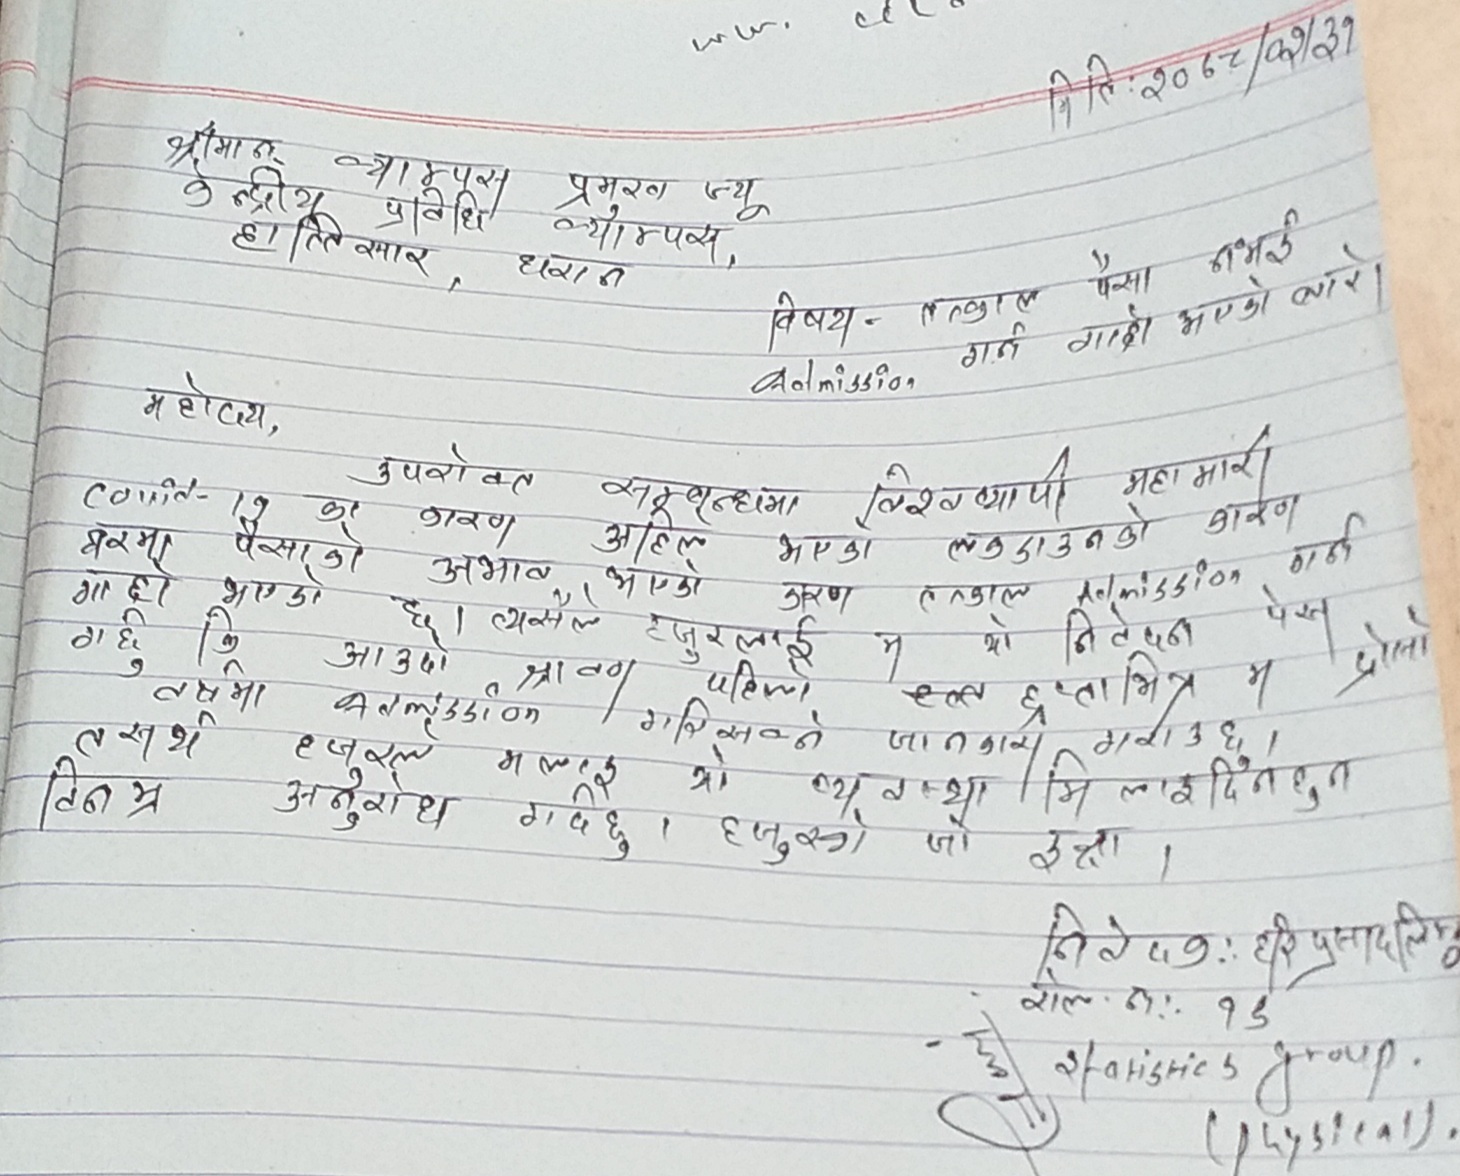 मिति: २०७८/०२/३१
श्रीमान् क्याम्पस प्रमुख ज्यू
केन्द्रीय प्रविधि क्याम्पस,
हात्तिसार, धरान
विषय - तत्काल पैसा नभई
Admission गर्न गाह्रो भएको बारे।
महोदय,
उपरोक्त सम्बन्धमा विश्वव्यापी महामारी
covid-19 को कारण अहिले भएको लकडाउनको कारण
घरमा पैसाको अभाव भएको कारण तत्काल Admission गर्न
गाह्रो भएको छ। त्यसैले हजुरलाई म यो निवेदन पेस
गर्छु कि आउदो श्रावण पहिलो हप्ताभित्र म दोस्रो
वर्षमा Admission गरिसक्ने जानकारी गराउछु।
तसर्थ हजुरले मलाई यो व्यवस्था मिलाइदिनुहुन
विनम्र अनुरोध गर्दछु। हजुरको जो इच्छा।
निवेदक: हरि प्रसाद लिम्बु
रोल. नं: १६
statistics group.
(physical).